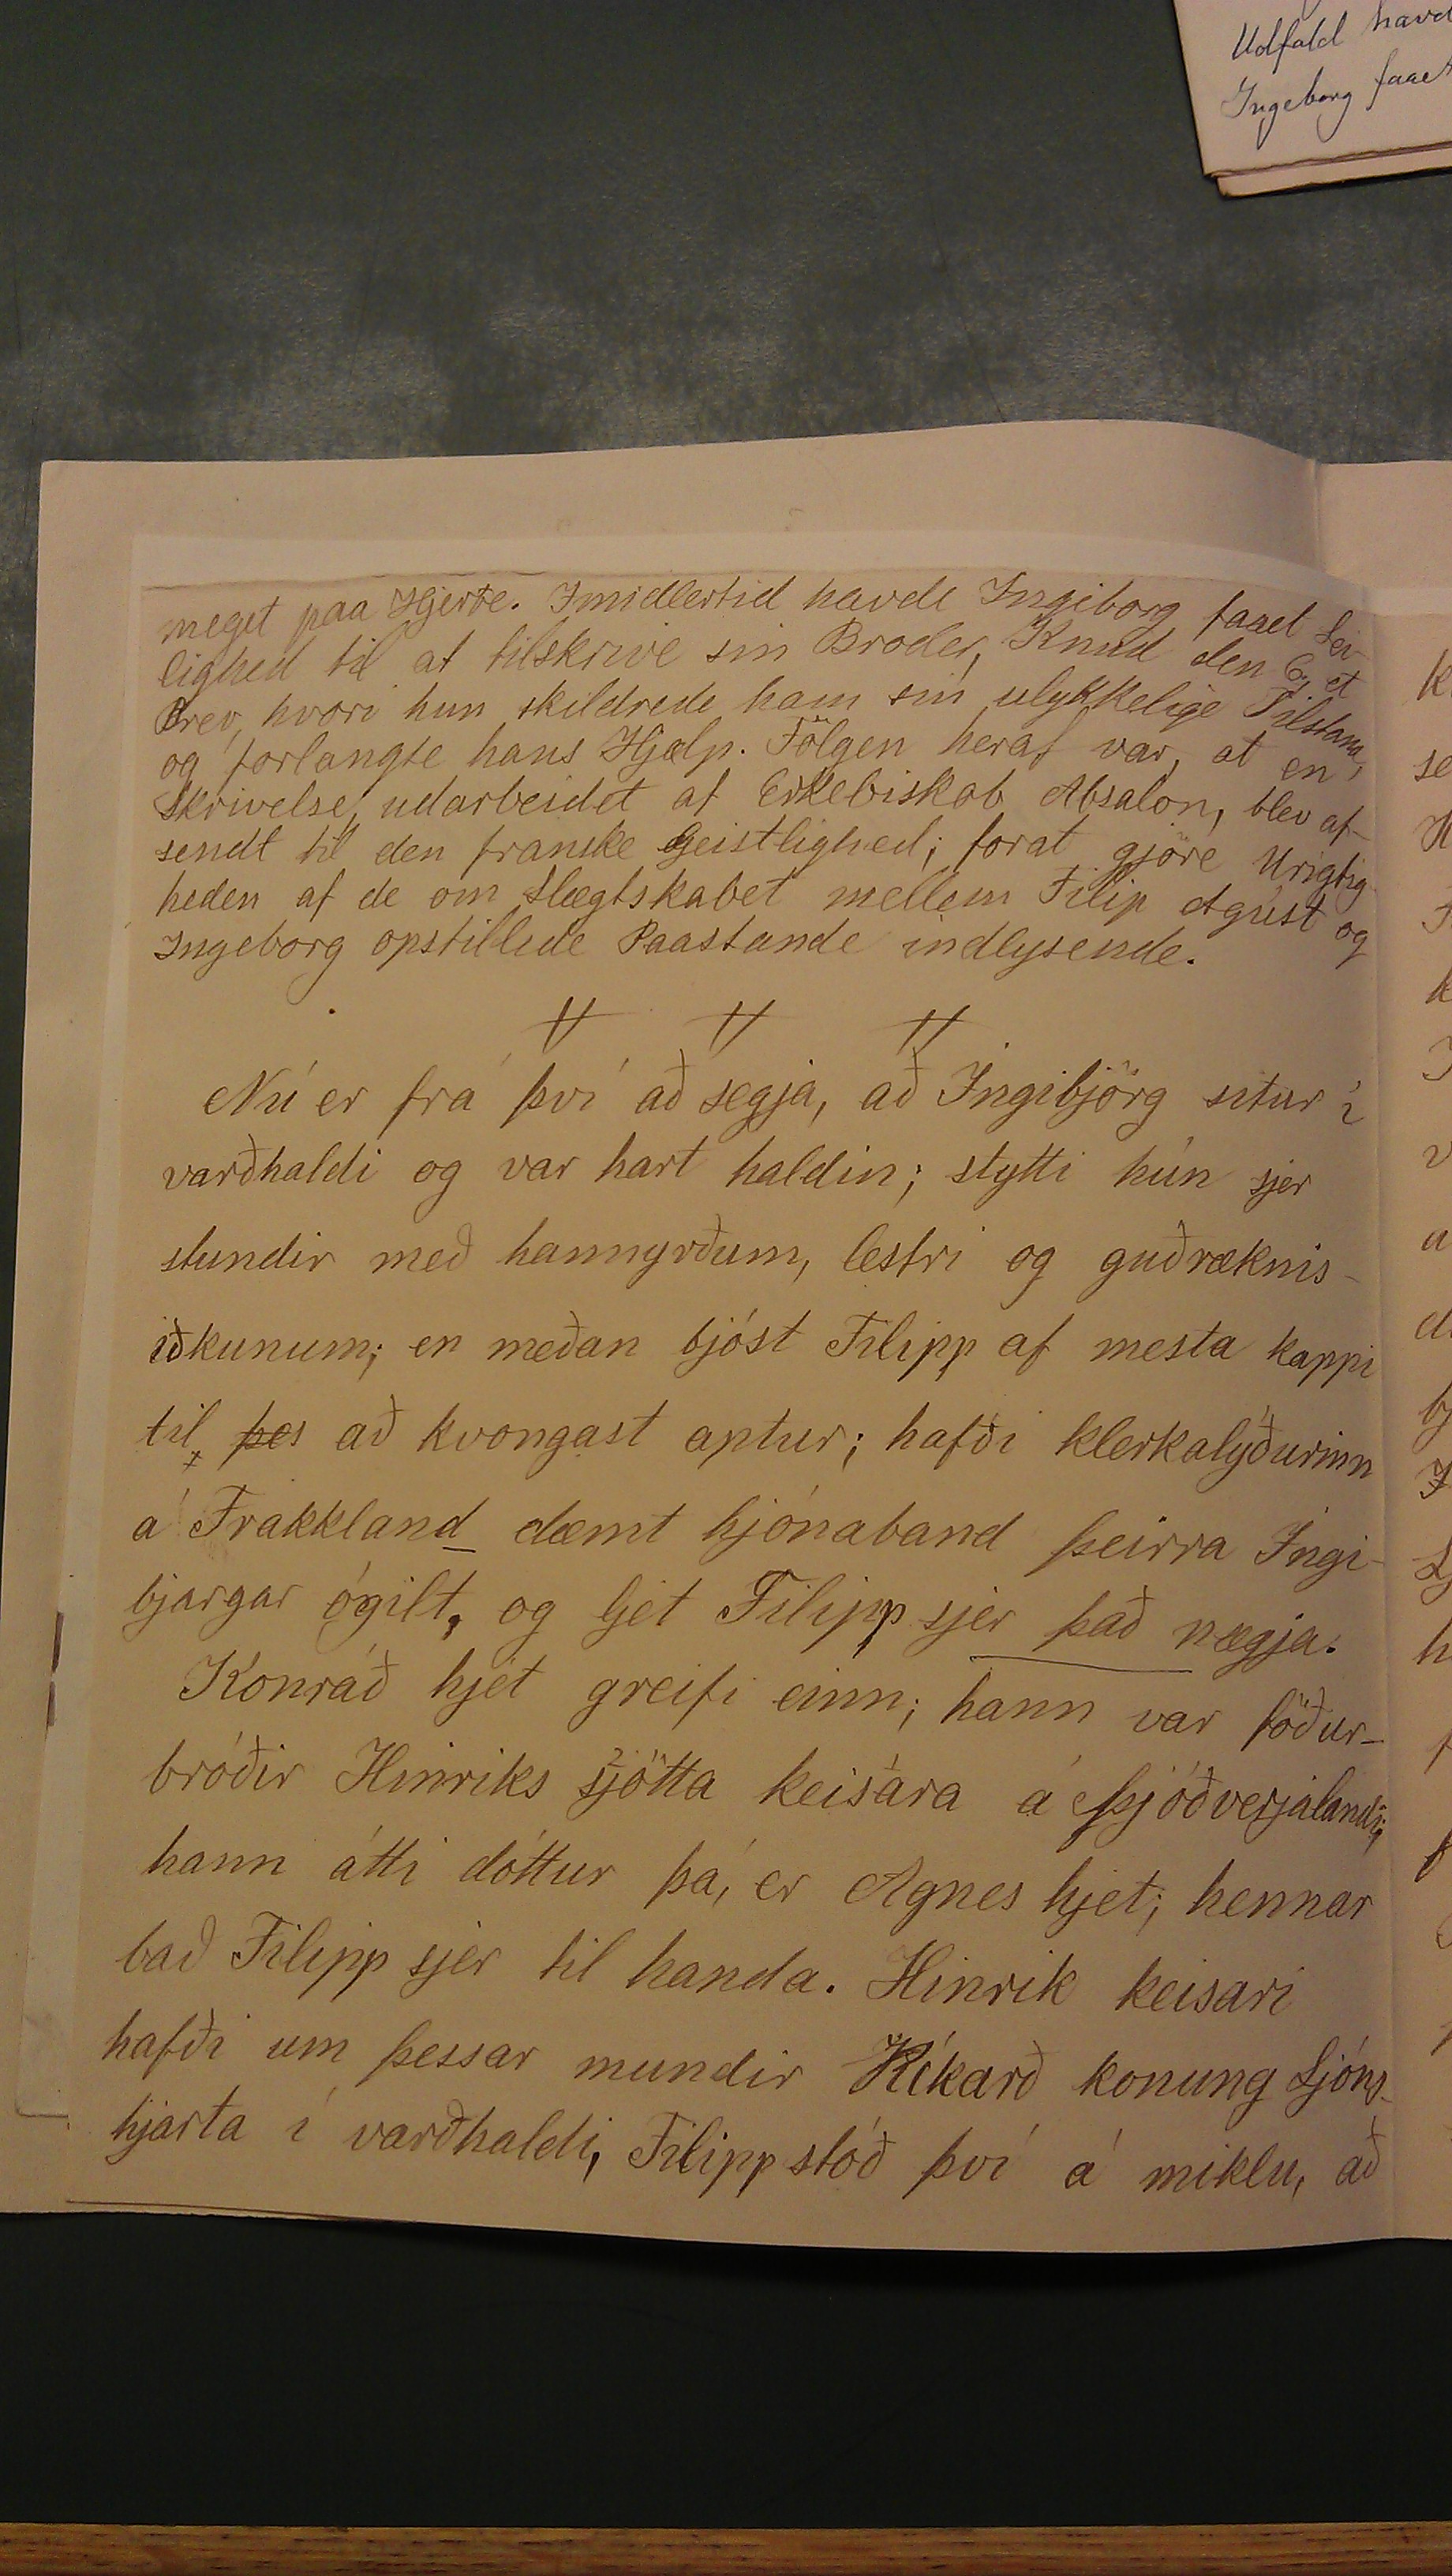 Udfald
Ingeborg faaet
meget paa Hjerte. Imidlertid havde Ingiborg faaet Lei-
lighed til at tilskrive sin Broder, Knud den 6, et
Brev, hvori hun skildrede ham sin ulykkelige Tilstand,
og forlangte hans Hjælp. Fölgen heraf var, at en
Skrivelse, udarbeidet af Erkebiskob Absalon, blev af-
sendt til den franske Geistlighed; forat gjöre Urigtig-
heden af de om Slægtskabet mellem Filip Agúst og
Ingeborg opstillede Paastande indlysende.
Nú er frá því að segja, að Ingibjörg situr í
varðhaldi og var hart haldin; stytti hún sjer
stundir með hannyrðum, lestri og guðræknis-
iðkunum; en meðan bjóst Filipp af mesta kappi
til þes að kvongast aptur; hafði klerkalýðurinn
á Frakkland dæmt hjónaband þeirra Ingi-
bjargar ógilt, og ljet Filipp sjer það nægja.
Konráð hjet greifi einn; hann var föður-
bróðir Hinriks sjötta keisara á Þjóðverjalandi;
hann átti dóttur þá, er Agnes hjet; hennar
bað Filipp sjer til handa. Hinrik keisari
hafði um þessar mundir Ríkarð konung Ljóns-
hjarta í varðhaldi, Filipp stóð því á miklu, að